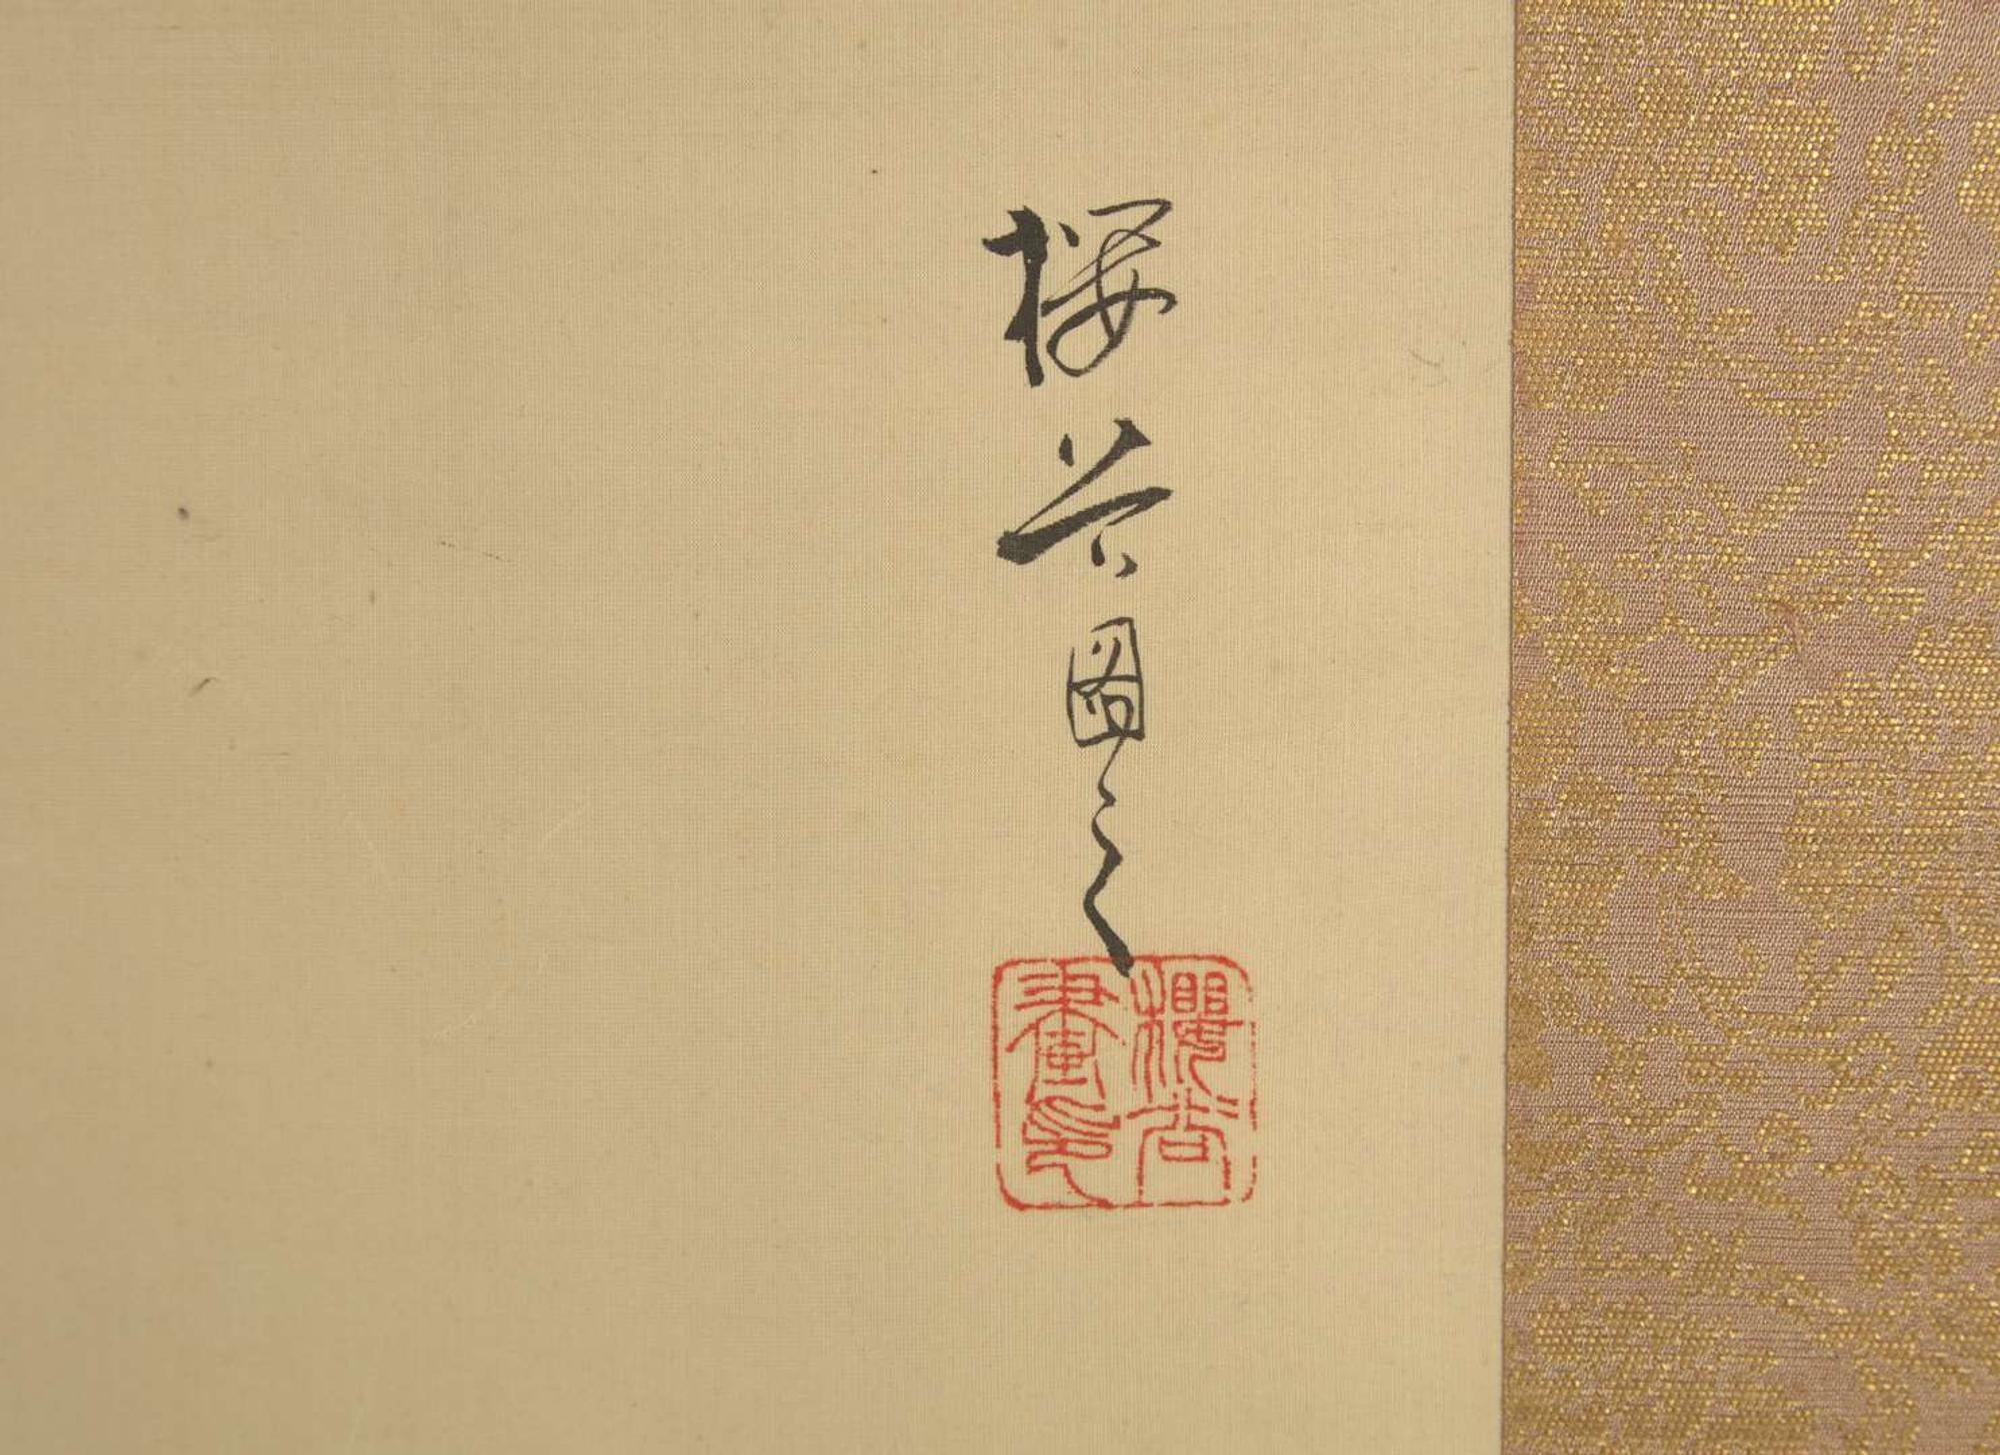 櫻谷圖之
櫻谷
畫印